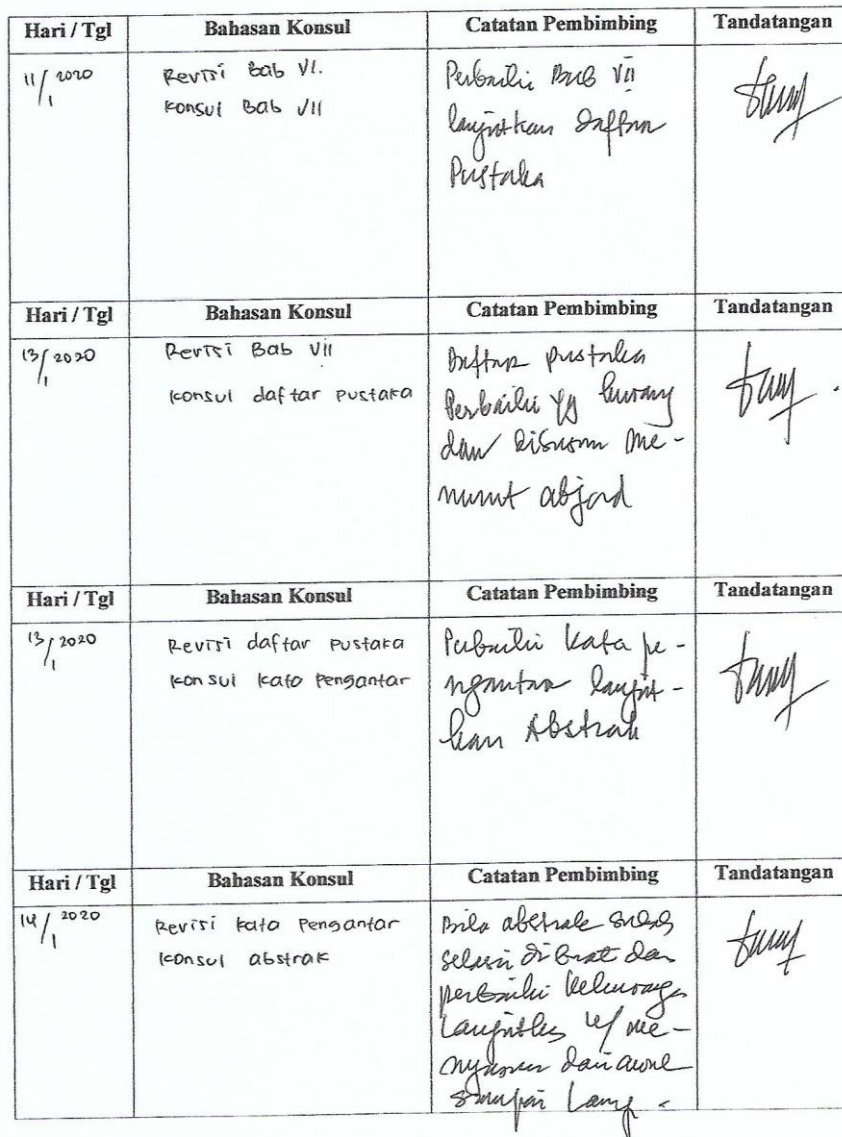 Hari / Tgl Bahasan Konsul Catatan Pembimbing Tandatangan
11/1 2020 Revisi Bab VI. Perbaiki Bab VII
Konsul Bab VII lanjutkan Daftar
Pustaka
Hari / Tgl Bahasan Konsul Catatan Pembimbing Tandatangan
13/1 2020 Revisi Bab VII Daftar pustaka
Konsul daftar pustaka Perbaiki yg kurang
dan disusun me-
nurut abjad
Hari / Tgl Bahasan Konsul Catatan Pembimbing Tandatangan
13/1 2020 Revisi daftar pustaka Perbaiki Kata pe-
Konsul Kata Pengantar ngantar lanjut-
kan Abstrak
Hari / Tgl Bahasan Konsul Catatan Pembimbing Tandatangan
14/1 2020 Revisi kata Pengantar Bila abstrak sudah
Konsul abstrak selesai di buat dan
perbaiki kekurangan
Lanjutkan u/ me-
nyusun dari awal
sampai